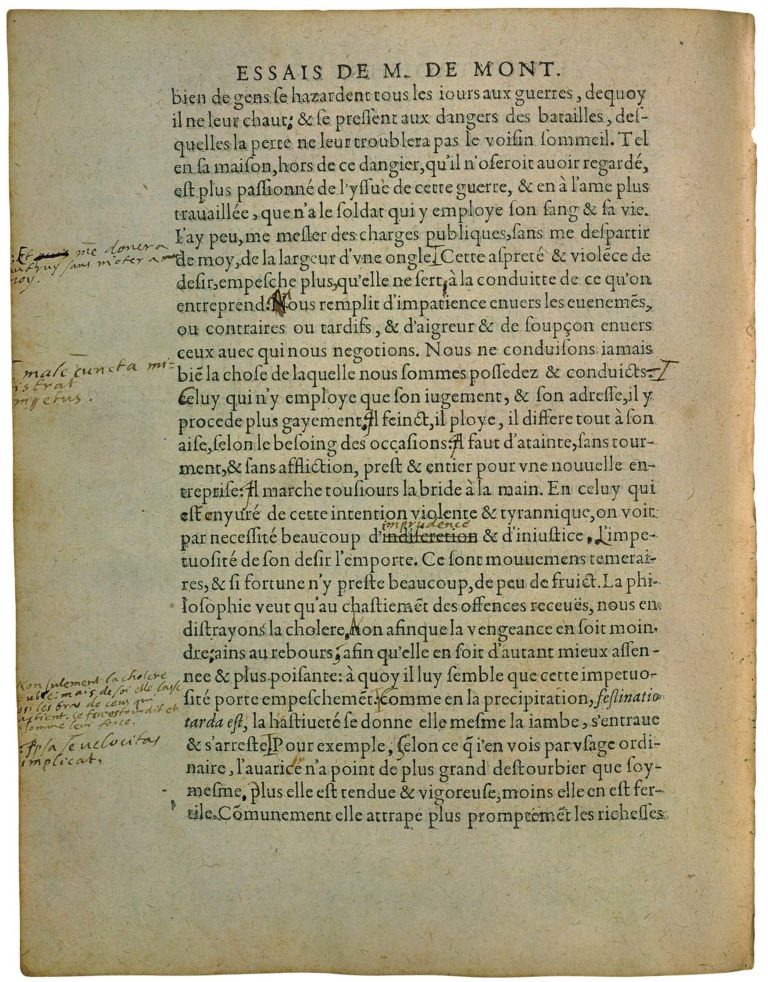 ESSAIS DE M. DE MONT.
bien de gens se hazardent tous les iours aux guerres, dequoy
il ne leur chaut; & se pressent aux dangers des batailles, des-
quelles la perte ne leur troublera pas le voisin sommeil. Tel
en sa maison, hors de ce dangier, qu'il n'oseroit auoir regardé,
est plus passionné de l'yssuë de cette guerre, & en à l'ame plus
trauaillée, que n'a le soldat qui y employe son sang & sa vie.
I'ay peu, me mesler des charges publiques, sans me despartir
de moy, de la largeur d'vne ongle. Cette aspreté & violēce de
desir, empesche plus, qu'elle ne sert, à la conduitte de ce qu'on
entreprend. Nous remplit d'impatience enuers les euenemēs,
ou contraires ou tardifs, & d'aigreur & de soupçon enuers
ceux auec qui nous negotions. Nous ne conduisons iamais
biē la chose de laquelle nous sommes possedez & conduicts.
Celuy qui n'y employe que son iugement, & son adresse, il y
procede plus gayement: Il feinct, il ploye, il differe tout à son
aise, selon le besoing des occasions: Il faut d'atainte, sans tour-
ment, & sans affliction, prest & entier pour vne nouuelle en-
treprise: Il marche tousiours la bride à la main. En celuy qui
est enyuré de cette intention violente & tyrannique, on voit
imprudence
par necessité beaucoup d'indiscretion & d'iniustice, L'impe-
tuosité de son desir l'emporte. Ce sont mouuemens temerai-
res, & si fortune n'y preste beaucoup, de peu de fruict. La phi-
losophie veut qu'au chastiemēt des offences receuës, nous en
distrayons la cholere, Non afinque la vengeance en soit moin-
dre: ains au rebours, afin qu'elle en soit d'autant mieux assen-
nee & plus poisante: à quoy il luy semble que cette impetuo-
sité porte empeschemēt. Comme en la precipitation, festinatio
tarda est, la hastiueté se donne elle mesme la iambe, s'entraue
& s'arreste. Pour exemple, selon ce q̃ i'en vois par vsage ordi-
naire, l'auarice n'a point de plus grand destourbier que soy-
mesme, plus elle est tendue & vigoreuse, moins elle en est fer-
tile. Cōmunement elle attrape plus promptemēt les richesses
me donera
sans m'oter a
male cuncta mi-
istrat
mpetus.
Non sulement la cholere
mais de soi elle lasse
les bras de ceus qui
Ipsa se velocitas
implicat,